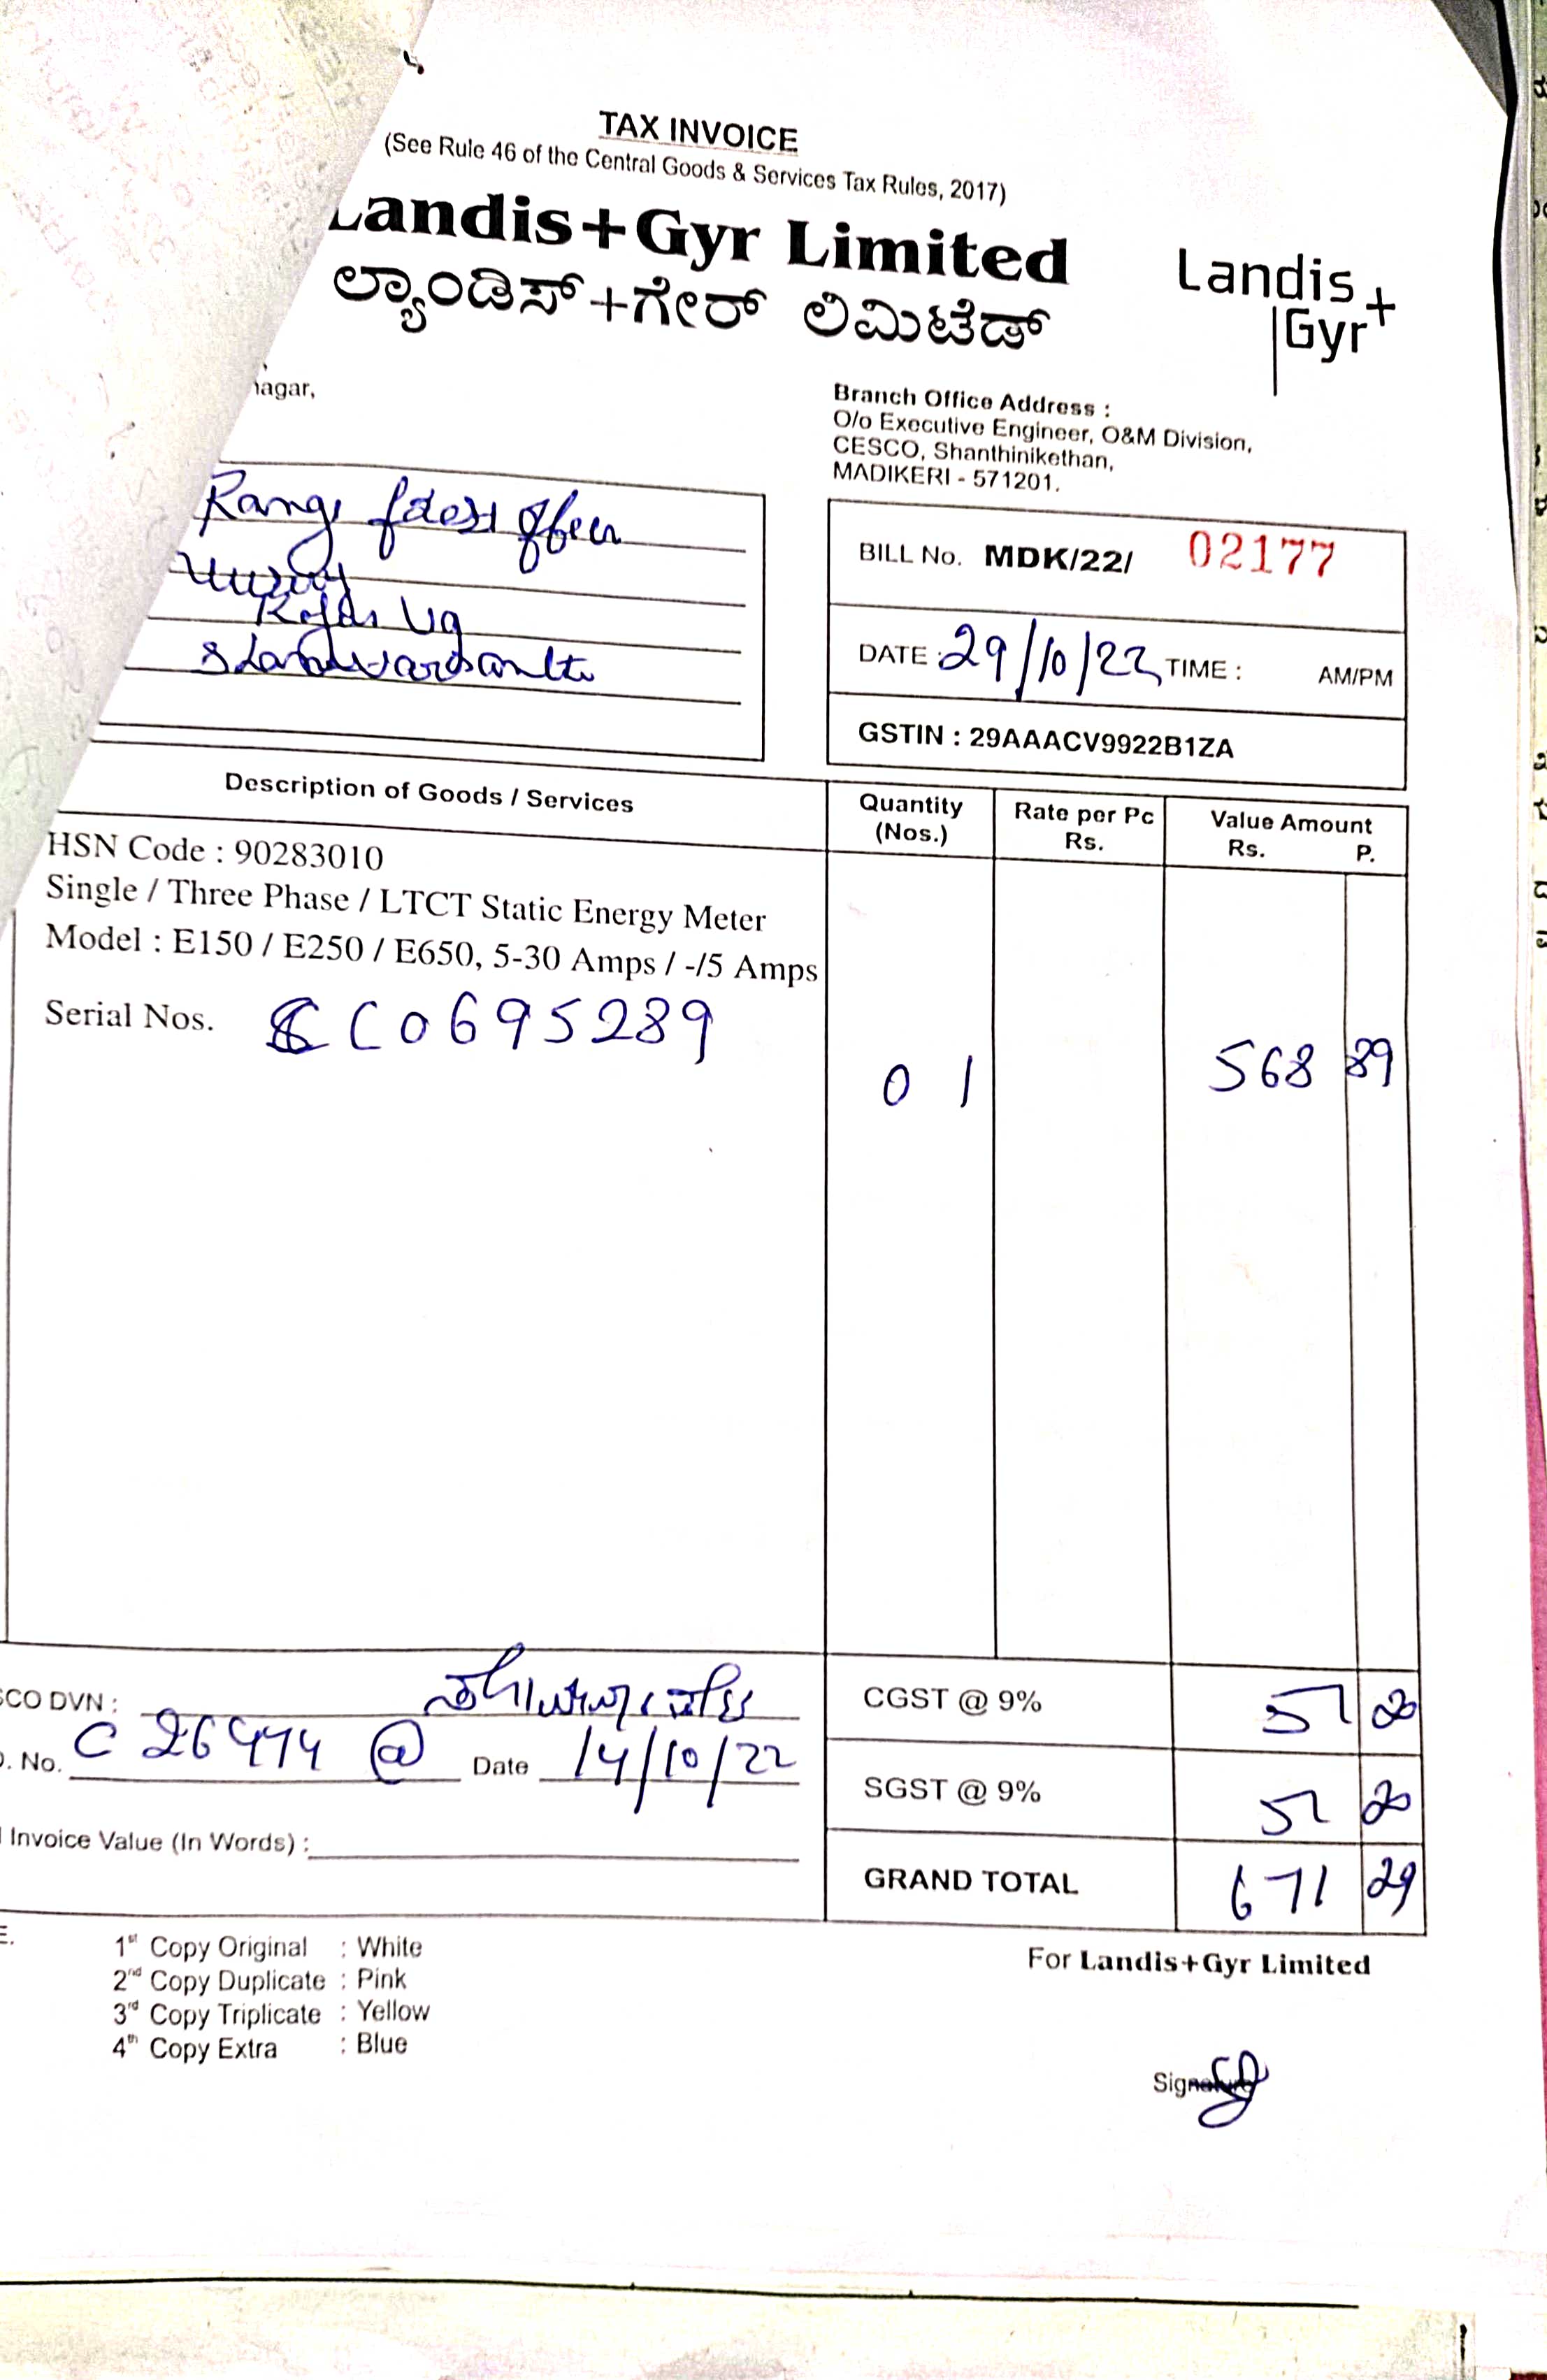 TAX INVOICE
(See Rule 46 of the Central Goods & Services Tax Rules, 2017)
Landis+Gyr Limited
ಲ್ಯಾಂಡಿಸ್+ಗೇರ್ ಲಿಮಿಟೆಡ್
Landis+
Gyr
nagar,
Branch Office Address :
O/o Executive Engineer, O&M Division,
CESCO, Shanthinikethan,
MADIKERI - 571201.
Range forest officer
BILL No. MDK/22/ 02177
DATE : 29/10/22 TIME : AM/PM
GSTIN : 29AAACV9922B1ZA
Description of Goods / Services
Quantity
(Nos.)
Rate per Pc
Rs.
Value Amount
Rs. P.
HSN Code : 90283010
Single / Three Phase / LTCT Static Energy Meter
Model : E150 / E250 / E650, 5-30 Amps / -/5 Amps
Serial Nos. CC0695289
01
568 89
SCO DVN :
CGST @ 9% 51 20
. No. C 26474 @ Date 14/10/22
SGST @ 9% 51 20
Invoice Value (In Words) :
GRAND TOTAL 671 29
E.
1st Copy Original : White
2nd Copy Duplicate : Pink
3rd Copy Triplicate : Yellow
4th Copy Extra : Blue
For Landis+Gyr Limited
Signature